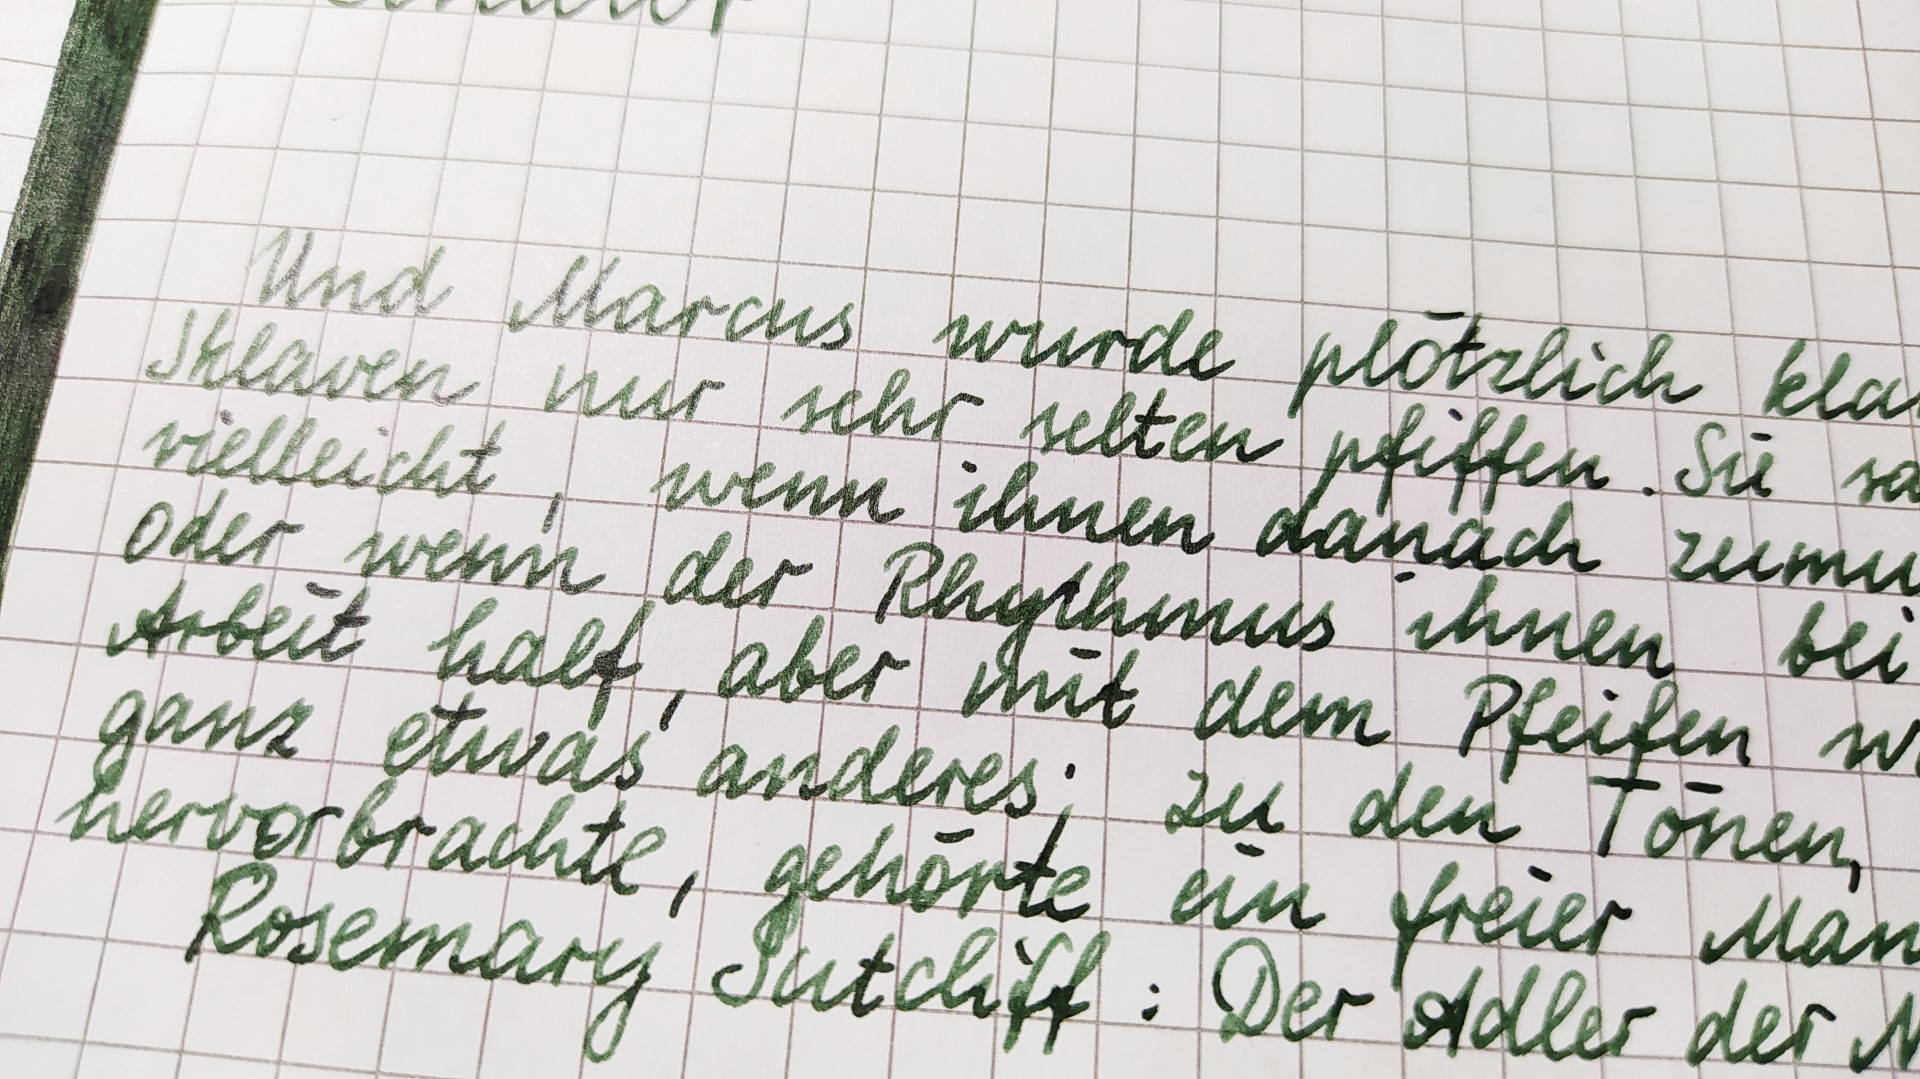 Und Marcus wurde plötzlich kla
Sklaven nur sehr selten pfiffen. Sie sa
vielleicht, wenn ihnen danach zumu
oder wenn der Rhythmus ihnen bei
Arbeit half, aber mit dem Pfeifen w
ganz etwas anderes; zu den Tönen,
hervorbrachte, gehörte ein freier Man
Rosemary Sutcliff: Der Adler der N